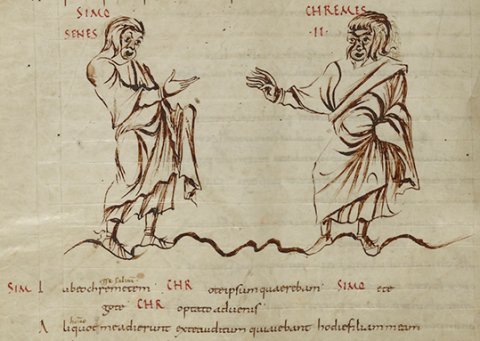 SIMO CHREMES
SENES ·II·
SIM I ubeochremetem CHR oteipsumquaerebam SIMO ete
gote CHR optatoadvenis
A liquot meadierunt exteauditum quiaiebant hodiefiliammeam